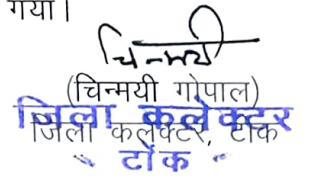 गया।
चिन्मयी
(चिन्मयी गोपाल)
जिला कलेक्टर
जिला कलेक्टर, टोंक
टोंक